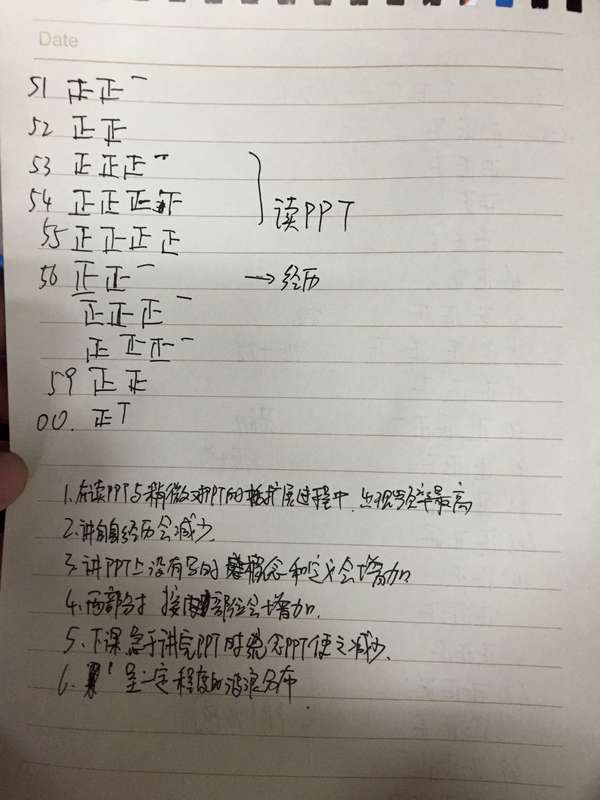 Date
51 正正一
52 正正
53 正正正一
54 正正正正
55 正正正正
读PPT
56 正正一 → 经历
正正正一
正正正一
59 正正
00. 正T
1.在读PPT与稍微对PPT的扩展过程中,出现频率最高
2.讲自身经历会减少
3.讲PPT上没有写的概念和定义会增加
4.两部分 接部位会增加.
5.下课急于讲完PPT时 念PPT使之减少.
6. 呈一定程度的波浪分布